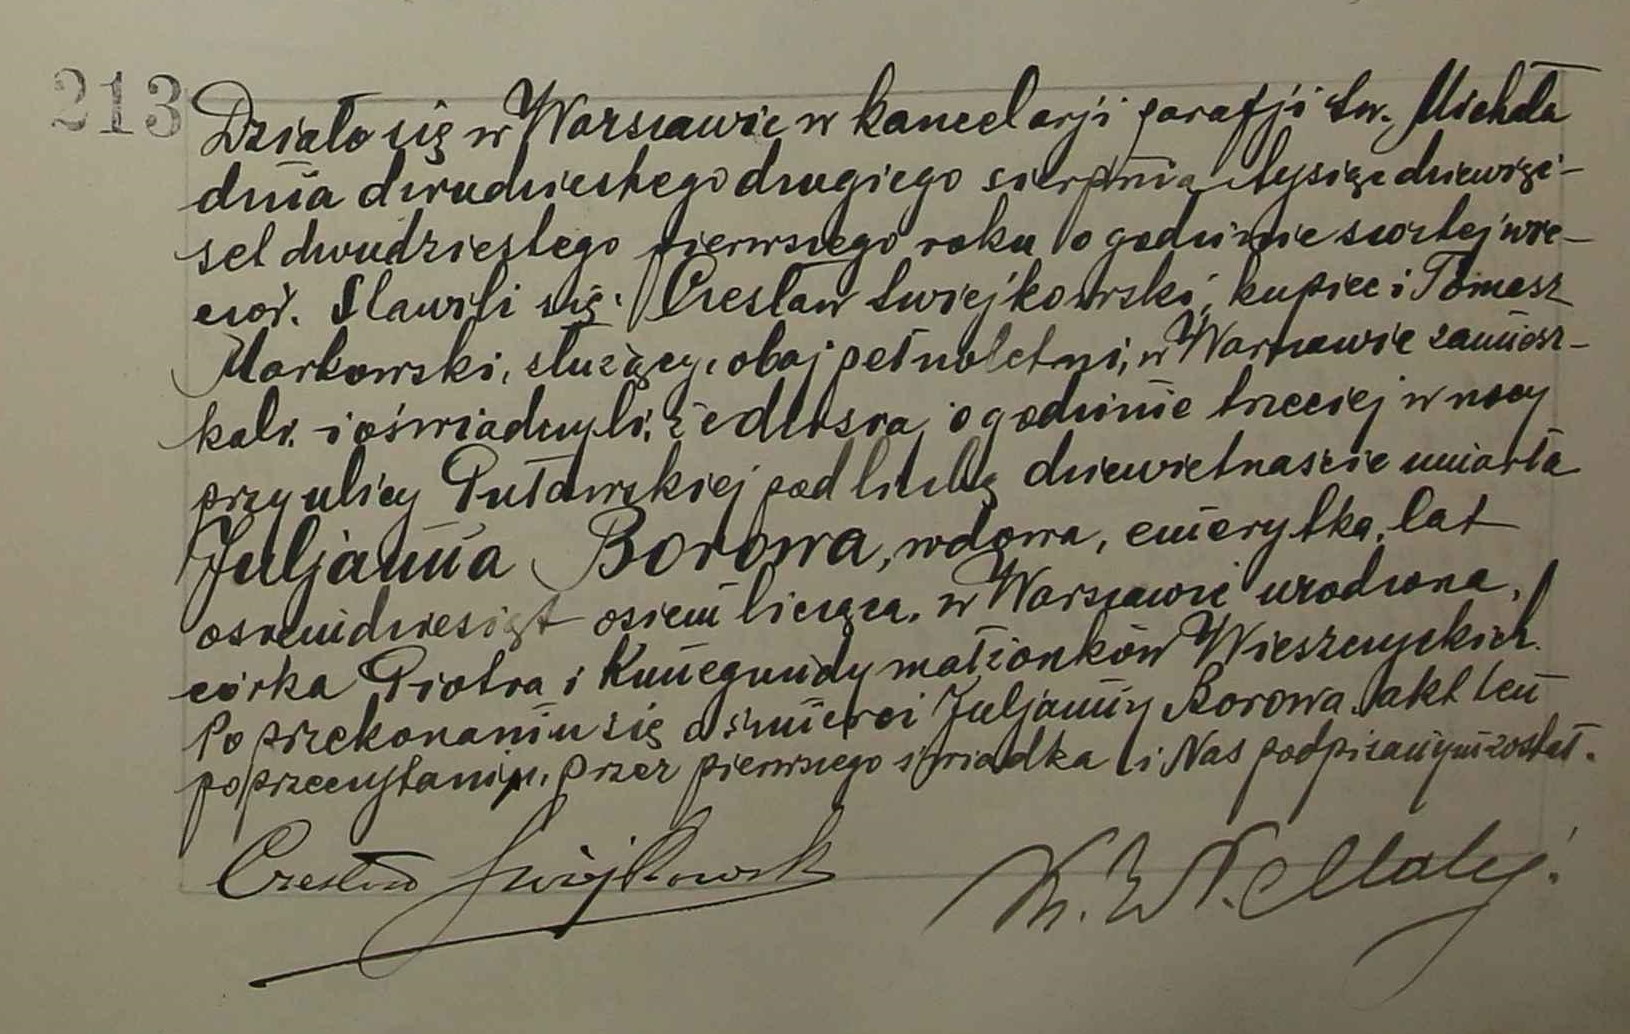 213
Działo się w Warszawie w kancelarji parafji św. Michała
dnia dwudziestego drugiego sierpnia tysiąc dziewięć-
set dwudziestego pierwszego roku o godzinie szóstej wie-
czór. Stawili się: Czesław Świejkowski, kupiec i Tomasz
Markowski, służący, obaj pełnoletni, w Warszawie zamiesz-
kali. i oświadczyli, że dzisia, o godzinie trzeciej w nocy
przy ulicy Puławskiej pod liczbą dziewietnaście umarła
Juljanna Borowa, wdowa, emerytka, lat
osiemdziesiąt osiem licząca, w Warszawie urodzona,
córka Piotra i Kunegundy małżonków Wieszczyckich.
Po przekonaniu się o śmierci Juljanny Borowa, akt ten
po przeczytaniu, przez pierwszego świadka i Nas podpisanym został.
Czesław Świejkowski